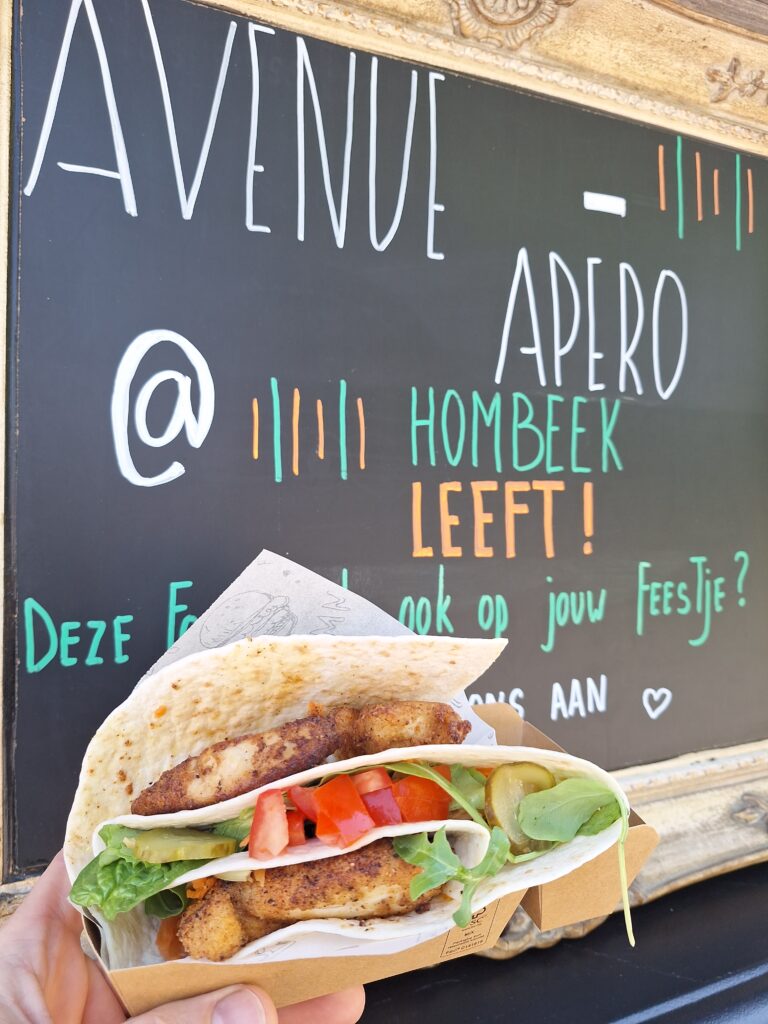 AVENUE -
APERO
@ HOMBEEK
LEEFT!
DEZE ook op jouw FEESTJE?
ONS AAN ♡